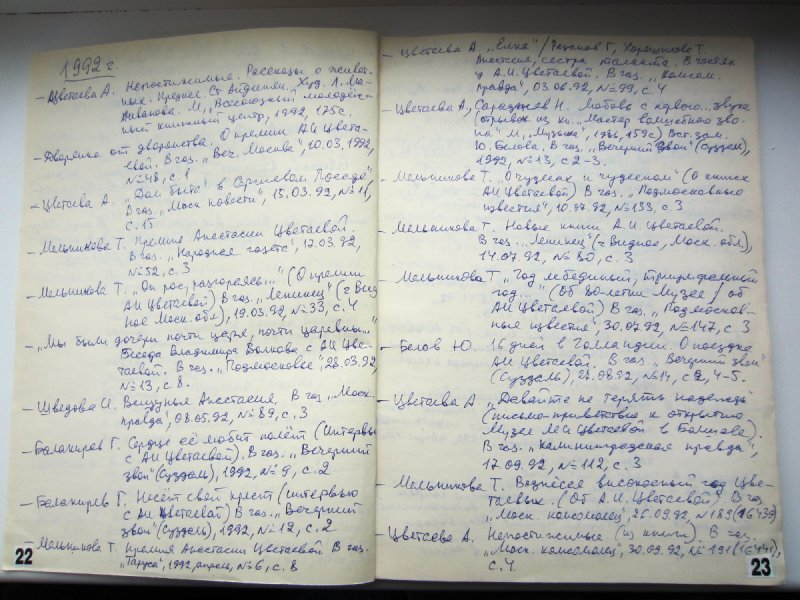 1992 г.
- Цветаева А. Непостижимые. Рассказы о живот-
ных. Предисл. Ст. Айдинян. Худ. Л. Ма-
М., "Всесоюзный молодёж-
ный книжный центр, 1992, 175с.
- Дворянка от дворянства. О премии АИ Цвета-
евой. В газ. "Веч. Москва", 10.03.1992,
№48, с.1
- Цветаева А. "Дом быта" в Сергиевом Посаде"
В газ. "Моск. новости", 15.03.92, №11,
с.15
- Мельникова Т. Премия Анастасии Цветаевой.
В газ. "Народная газета", 17.03.92,
№52, с.3
- Мельникова Т. "Он рос, разгораясь..." (О премии
АИ Цветаевой) В газ. "Ленинец" (г Вид
ное Моск. обл), 19.03.92, №33, с.4
- "Мы были дочери почти царя, почти царевны..."
Беседа Владимира Волкова с АИ Цве-
таевой. В газ. "Подмосковье", 28.03.92,
№13, с 8.
- Шведова И. Вещуньи Анастасия. В газ "Моск.
правда", 08.05.92, №89, с.3
- Балакирев Г. Сердце её любит полёт (интервью
с АИ Цветаевой). В газ. "Вечерний
звон" (Суздаль), 1992, №9, с.2
- Балакирев Г. Несёт свой крест (интервью
с АИ Цветаевой) В газ. "Вечерний
звон" (Суздаль), 1992, №12, с.2
- Мельникова Т. Премия Анастасии Цветаевой. В газ.
"Таруса", 1992, апрель, №6, с.8
22
- Цветаева А. "Ёлка" / Г, Хорошилова Т.
Анастасия, сестра таланта. В гостях
у А.И. Цветаевой. В газ. "Комсом.
правда", 03.06.92, №99, с.4
- Цветаева А, Сараджев Н. Любовь с первого.. звука
(отрывок из кн. "Мастер волшебного зво-
на" М, "Музыка", 1986, 159с) Вст. зам.
Ю. Белова. В газ. "Вечерний Звон" (Суздаль),
1992, №13, с 2-3.
- Мельникова Т. "О чудесах и чудесном" (О книгах
АИ Цветаевой) В газ. "Подмосковные
известия", 10.07.92, №133, с.3
- Мельникова Т. Новые книги А.И. Цветаевой.
В газ. "Ленинец" (г Видное, Моск. обл),
14.07.92, № 80, с.3
- Мельникова Т "Год лебединый, триумфальный
год..." (Об 80-летии Музея / об
АИ Цветаевой) В газ. "Подмосков-
ные известия", 30.07.92, №147, с.3
- Белов Ю. 16 дней в Голландии О поездке
АИ Цветаевой. В газ. "Вечерний звон"
(Суздаль), 28.08.92, №14, с 2, 4-5.
- Цветаева А "Давайте не терять надежды
(письмо-приветствие к открытию
Музея МИ Цветаевой в Болшеве).
В газ. "Калининградская правда",
17.09.92, №112, с.3
- Мельникова Т. Вознёсся високосный год Цве-
таевых. (От А.И. Цветаевой) В газ
"Моск. комсомолец", 26.09.92, №189 (16439)
- Цветаева А. Непостижимые (из книги). В газ.
"Моск. комсомолец", 30.09.92, №191 (16441),
с.4.
23